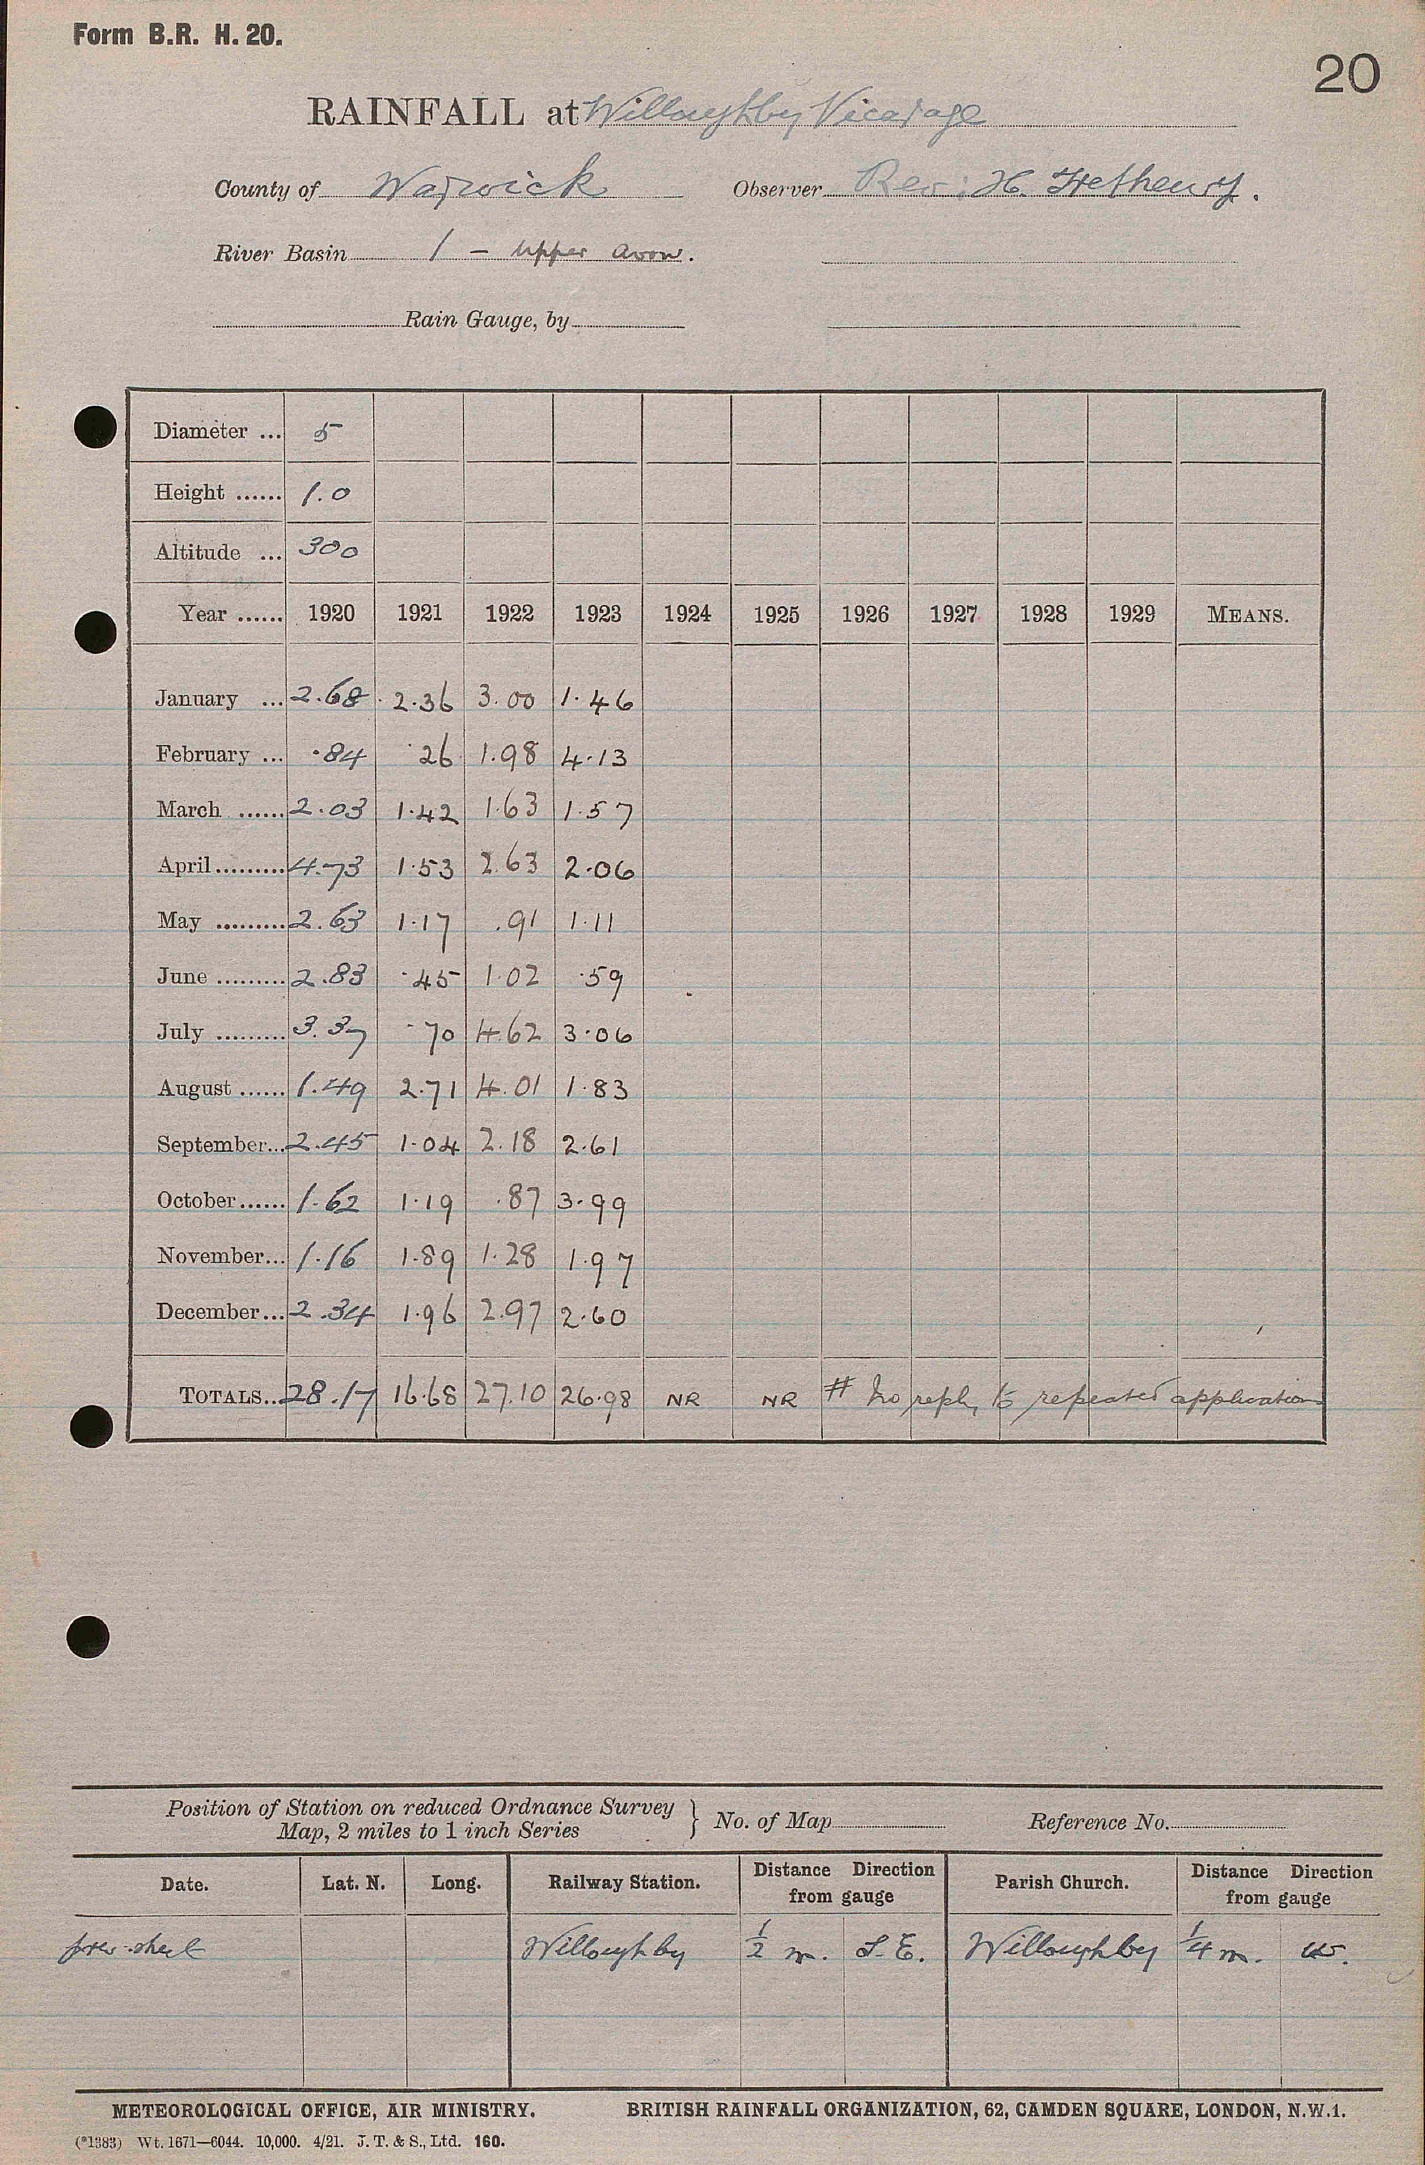 Form B.R. H. 20.
20
RAINFALL at Willoughby Vicarage
County of Warwick Observer Rev: H.
River Basin 1 - Upper Avon.
Rain Gauge, by
Diameter ... 5
Height ...... 1.0
Altitude ... 300
Year ...... 1920 1921 1922 1923 1924 1925 1926 1927 1928 1929 MEANS.
January ... 2.68 2.36 3.00 1.46
February ... .84 .26 1.98 4.13
March ...... 2.03 1.42 1.63 1.57
April ......... 4.73 1.53 2.63 2.06
May ......... 2.63 1.17 .91 1.11
June ......... 2.83 .45 1.02 .59
July ......... 3.37 .70 4.62 3.06
August ...... 1.49 2.71 4.01 1.83
September... 2.45 1.04 2.18 2.61
October...... 1.62 1.19 .87 3.99
November... 1.16 1.89 1.28 1.97
December... 2.34 1.96 2.97 2.60
TOTALS... 28.17 16.68 27.10 26.98 NR NR # No reply to repeated applications
Position of Station on reduced Ordnance Survey
Map, 2 miles to 1 inch Series } No. of Map Reference No.
Date. Lat. N. Long. Railway Station. Distance Direction from gauge Parish Church. Distance Direction from gauge
prev. sheet Willoughby 1/2 m. S.E. Willoughby 1/4 m. W.
METEOROLOGICAL OFFICE, AIR MINISTRY. BRITISH RAINFALL ORGANIZATION, 62, CAMDEN SQUARE, LONDON, N.W.1.
(*1383) Wt. 1671—6044. 10,000. 4/21. J. T. & S., Ltd. 160.